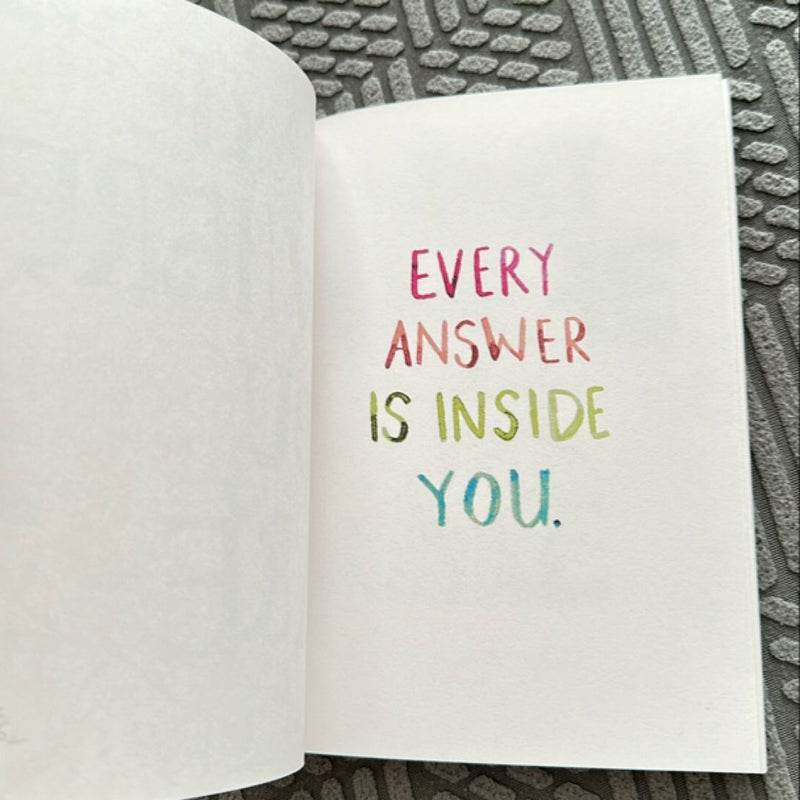 EVERY
ANSWER
IS INSIDE
YOU.